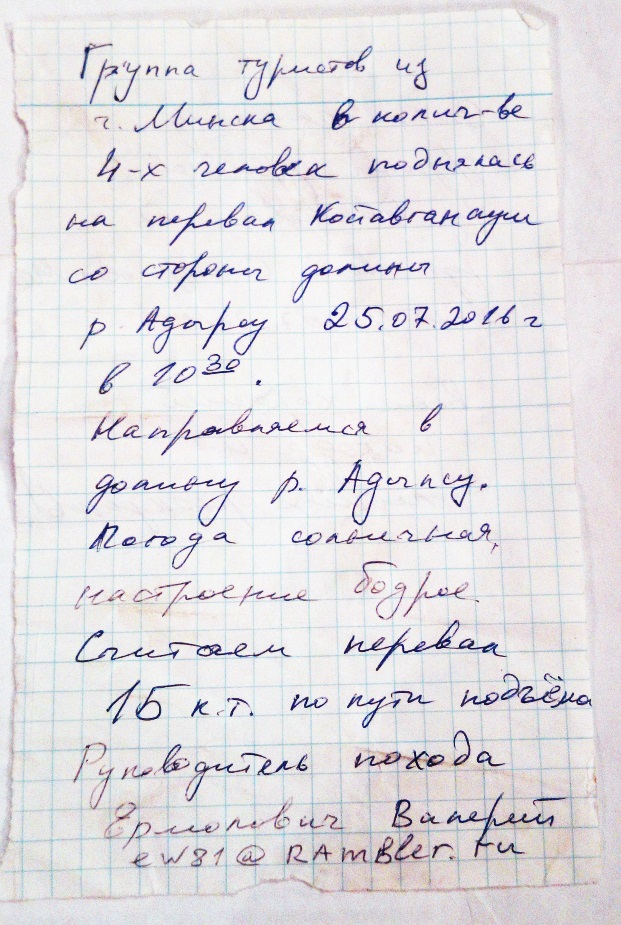 Группа туристов из
г. Минска в колич-ве
4-х человек поднялась
на перевал Койавганауш
со стороны долины
р. Адырсу 25.07.2016 г
в 10 30.
Направляемся в
долину р. Адылсу.
Погода солнечная,
настроение бодрое.
Считаем перевал
1Б к.т. по пути подъёма
Руководитель похода
Ермолович Валерий
ew81@RAmBler.ru